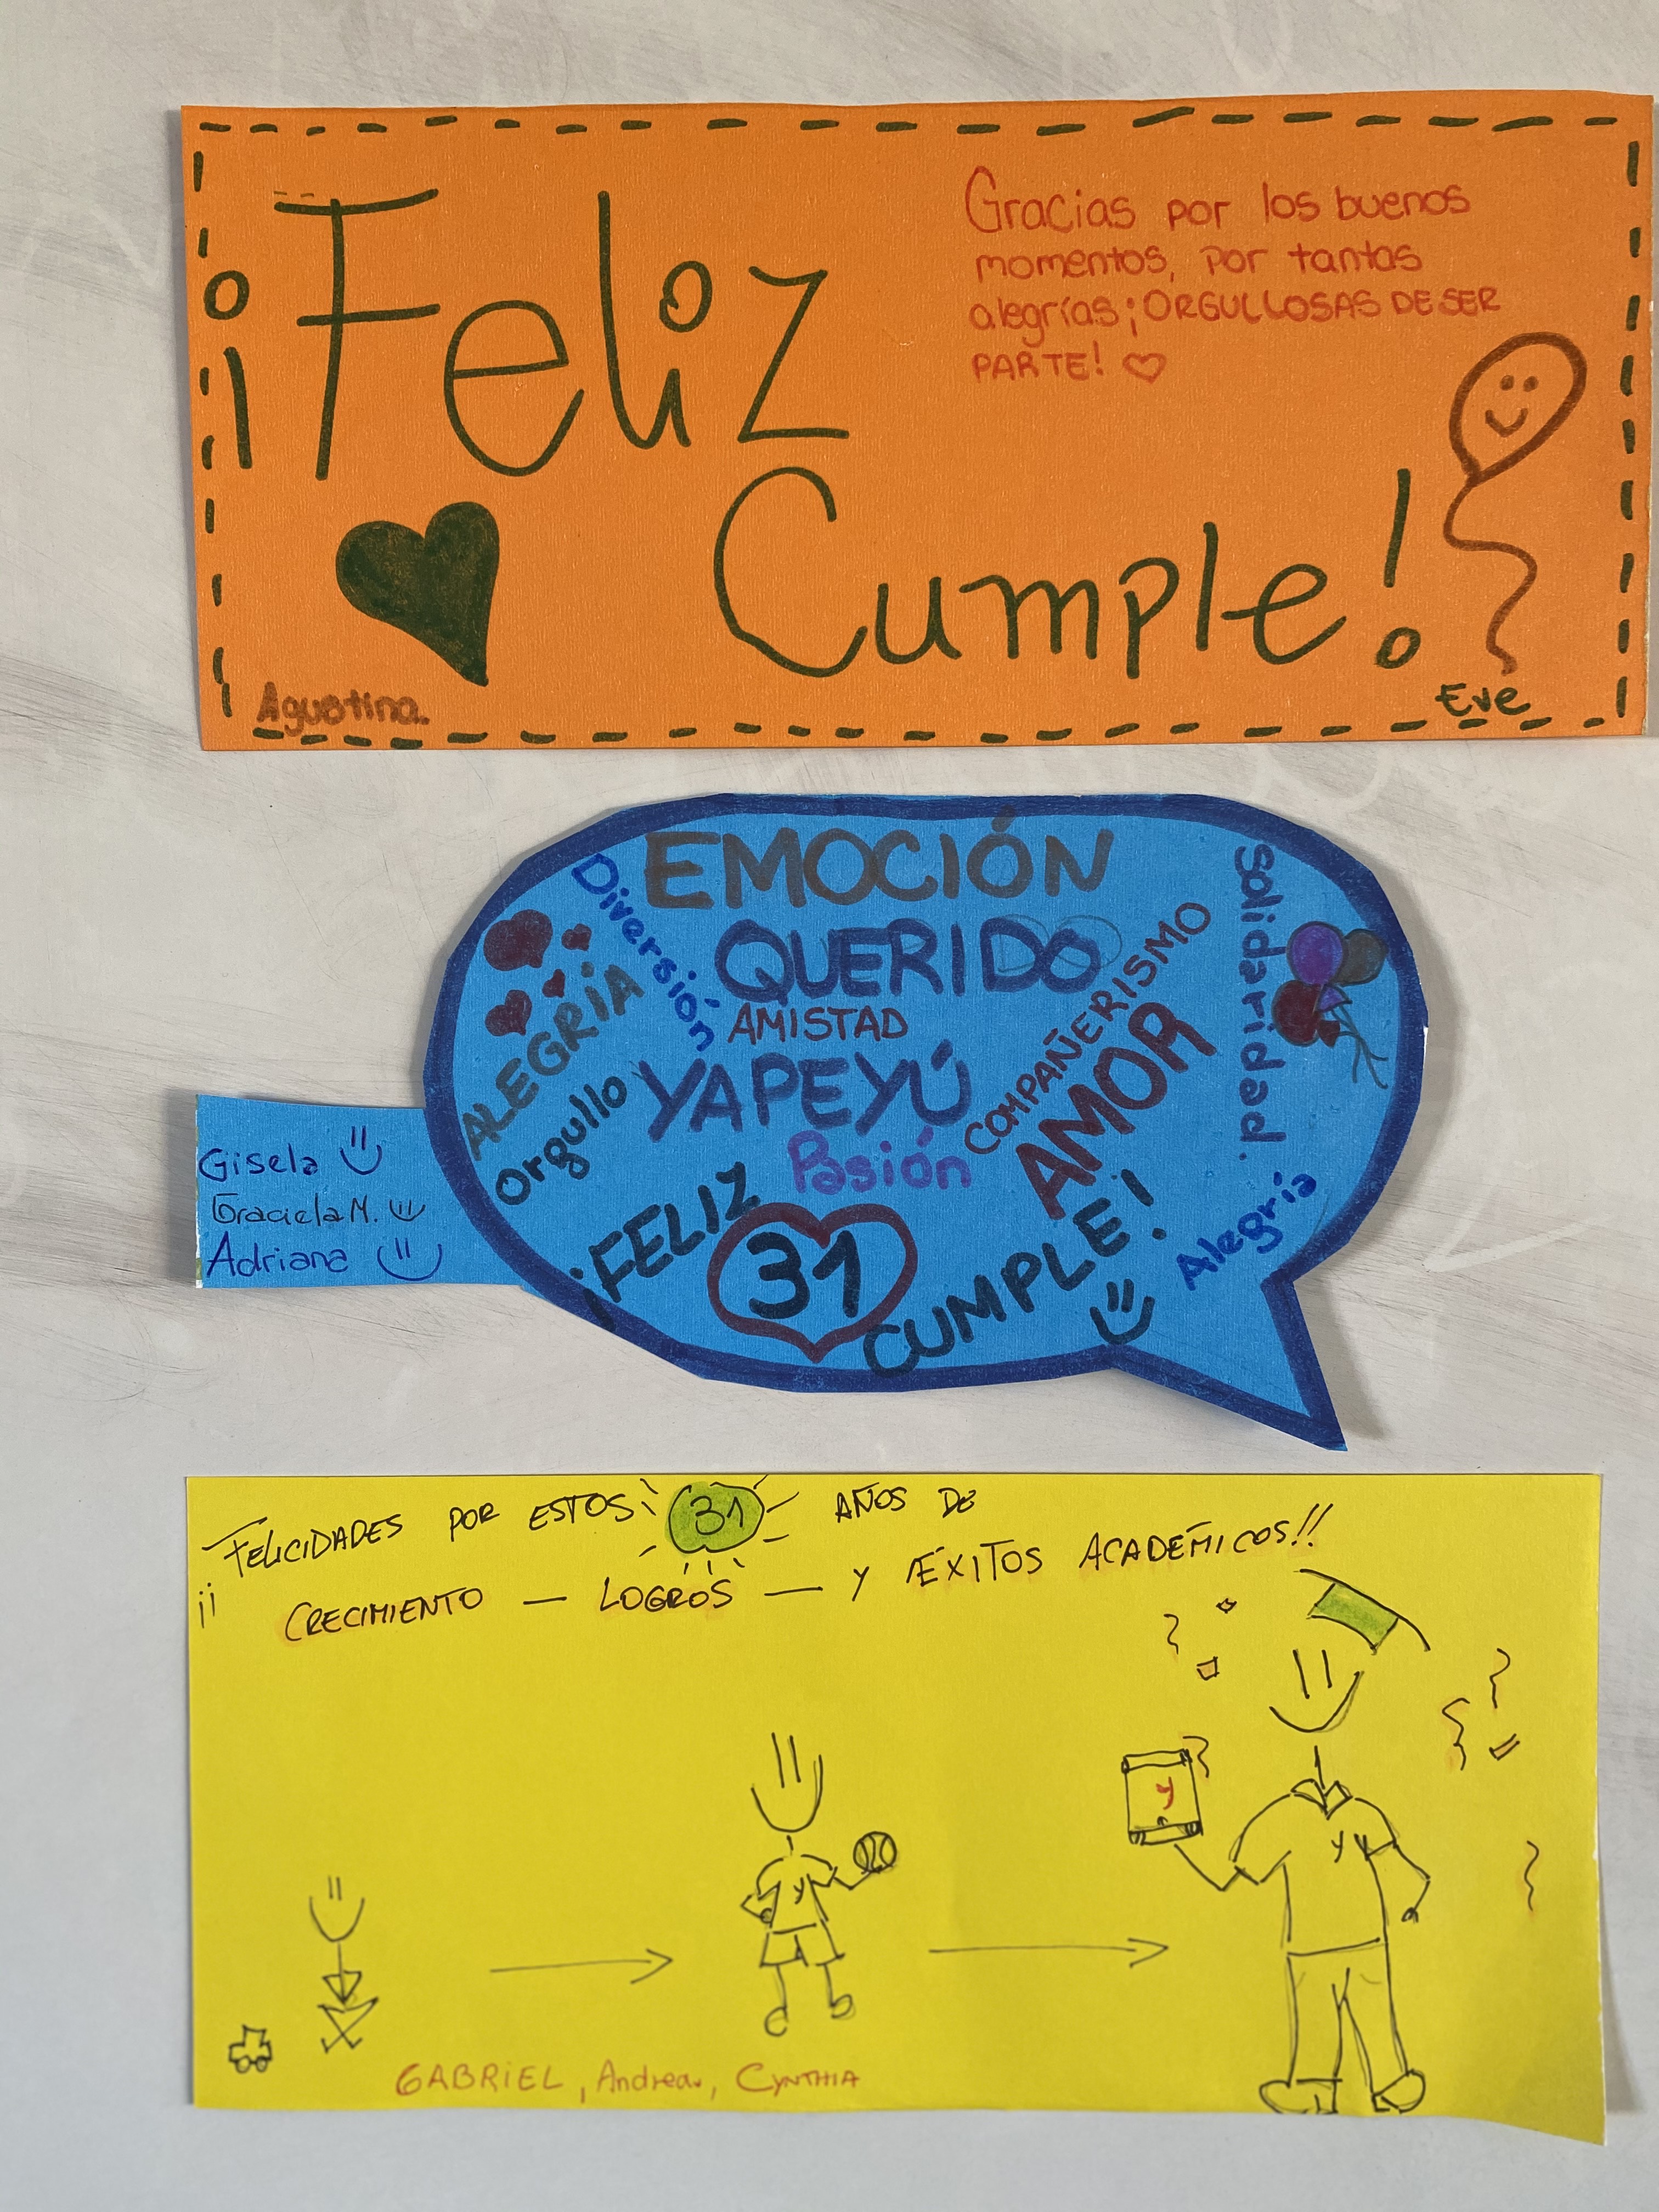 ¡Feliz
Cumple!
Gracias por los buenos
momentos, por tantas
alegrías ¡ORGULLOSAS DE SER
PARTE!
Agustina.
Eve
EMOCIÓN
Diversión
QUERIDO
Solidaridad.
ALEGRÍA
AMISTAD
COMPAÑERISMO
YAPEYÚ
AMOR
Orgullo
Pasión
¡FELIZ
31
CUMPLE!
Alegría
Gisela
Graciela M.
Adriana
FELICIDADES POR ESTOS 31 AÑOS DE
¡¡ CRECIMIENTO — LOGROS — Y ÉXITOS ACADÉMICOS!!
Y
Y
Y
GABRIEL, Andrea, CYNTHIA